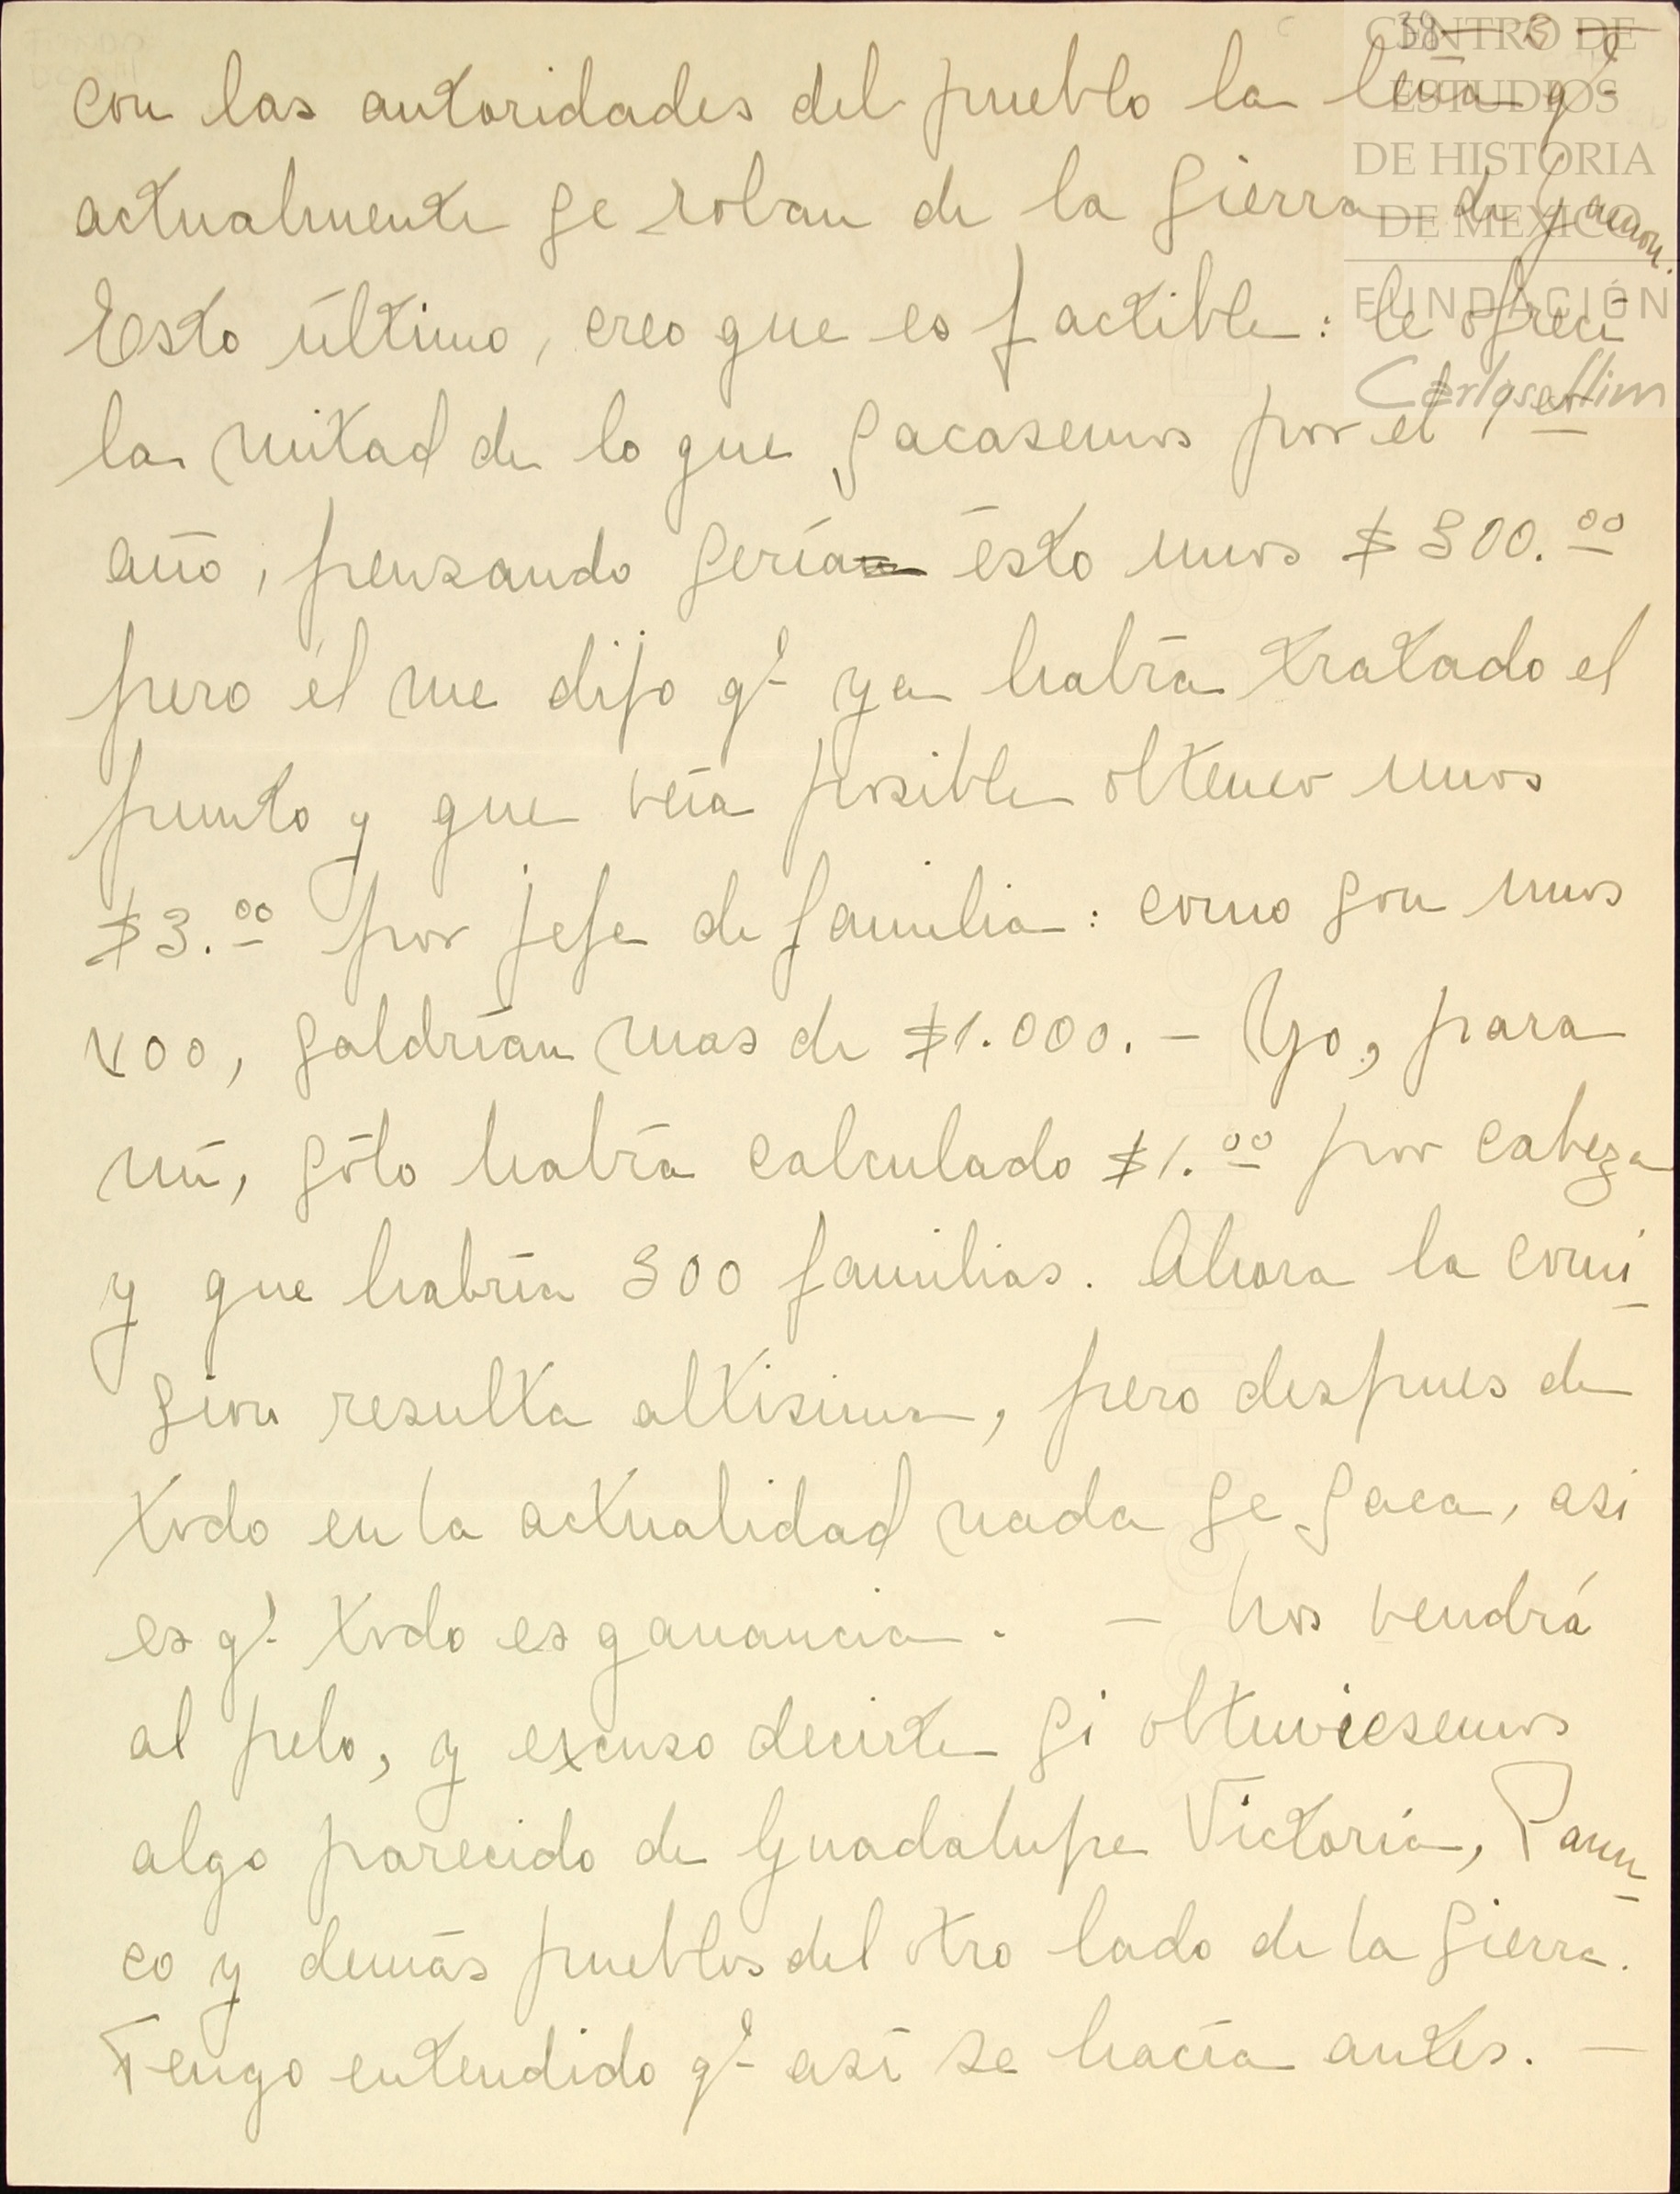 38 - 3 -
con las autoridades del pueblo la leña q.e
actualmente se roban de la Sierra de Gamon.
Esto último, creo que es factible: le ofrecí
la mitad de lo que sacasemos por el 1er
año, pensando sería ésto unos $ 300.00
pero él me dijo q.e ya había tratado el
punto y que veía posible obtener unos
$3.00 por jefe de familia: como son unos
400, saldrían mas de $1.000. - Yo, para
mí, sólo había calculado $1.00 por cabeza
y que habría 300 familias. Ahora la comi-
sion resulta altisima, pero despues de
todo en la actualidad nada se saca, asi
es q.e todo es ganancia. - Nos vendrá
al pelo, y excuso decirte si obtuviesemos
algo parecido de Guadalupe Victoria, Panu-
co y demás pueblos del otro lado de la Sierra.
Tengo entendido q.e así se hacía antes. -
CENTRO DE
ESTUDIOS
DE HISTORIA
DE MEXICO
FUNDACIÓN
Carlos Slim